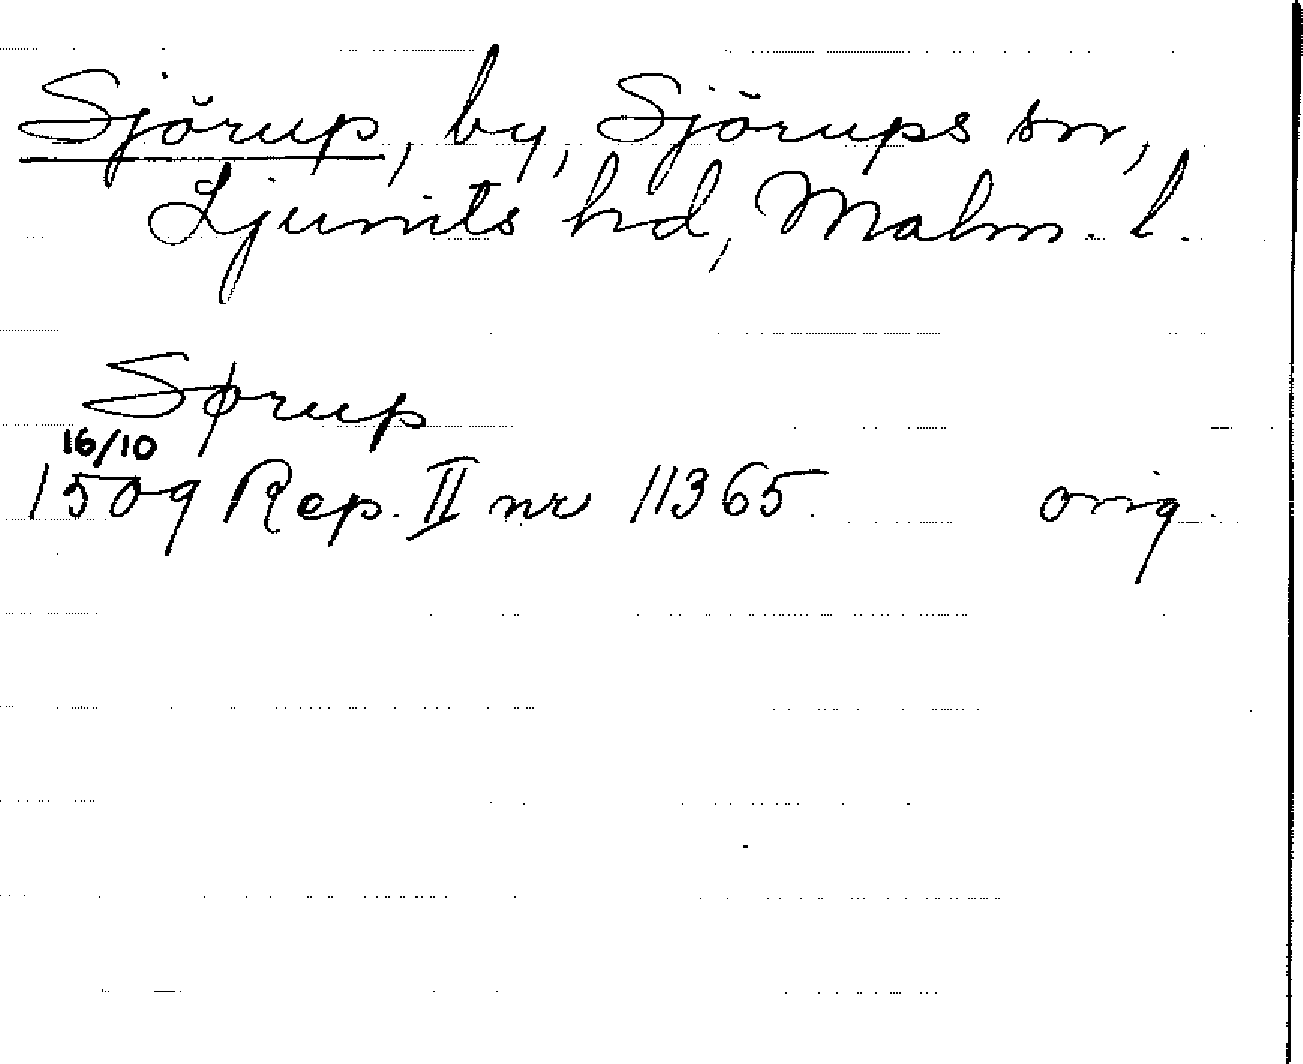 Sjörup, by, Sjörups sn,
Ljunits hd, Malm. l.
Sørup
16/10
1509 Rep. II nr 11365. orig.